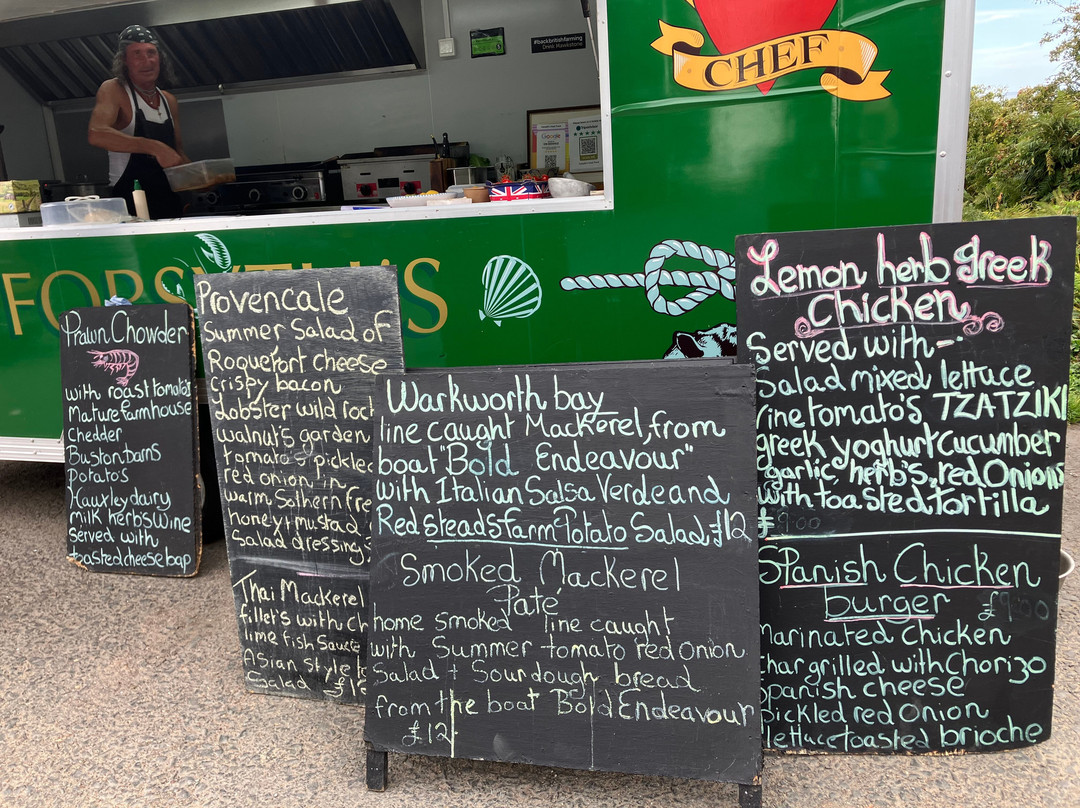 #backbritishfarming
CHEF
Google
FORSYTH'S
Prawn Chowder
with roast tomato's
Mature farmhouse
Chedder
Bustonbarns
Potato's
Hauxley dairy
milk herbs wine
Served with
toasted cheese bap
Provencale
Summer Salad of
Roquefort cheese
Crispy bacon
Lobster wild rock
walnut's garden
tomato's pickled
red onion in
warm
honey + mustad
Salad dressing
Thai Mackerel
fillet's with
lime fish Sauce
Asian Style
Salad
Warkworth bay
line caught Mackerel, from
boat "Bold Endeavour"
with Italian Salsa Verde and
Redsteads farm Potato Salad £12
Smoked Mackerel
Paté
home smoked line caught
with Summer tomato red onion
Salad + Sourdough bread
from the boat Bold Endeavour
£12
Lemon herb Greek
Chicken
Served with -
Salad mixed lettuce
Vine tomato's TZATZIKI
greek yoghurt cucumber
garlic, herb's, red Onions
with toasted tortilla
£9:00
Spanish Chicken
burger £9:00
Marinated Chicken
Chargrilled with Chorizo
Spanish cheese
Pickled red Onion
lettuce toasted brioche